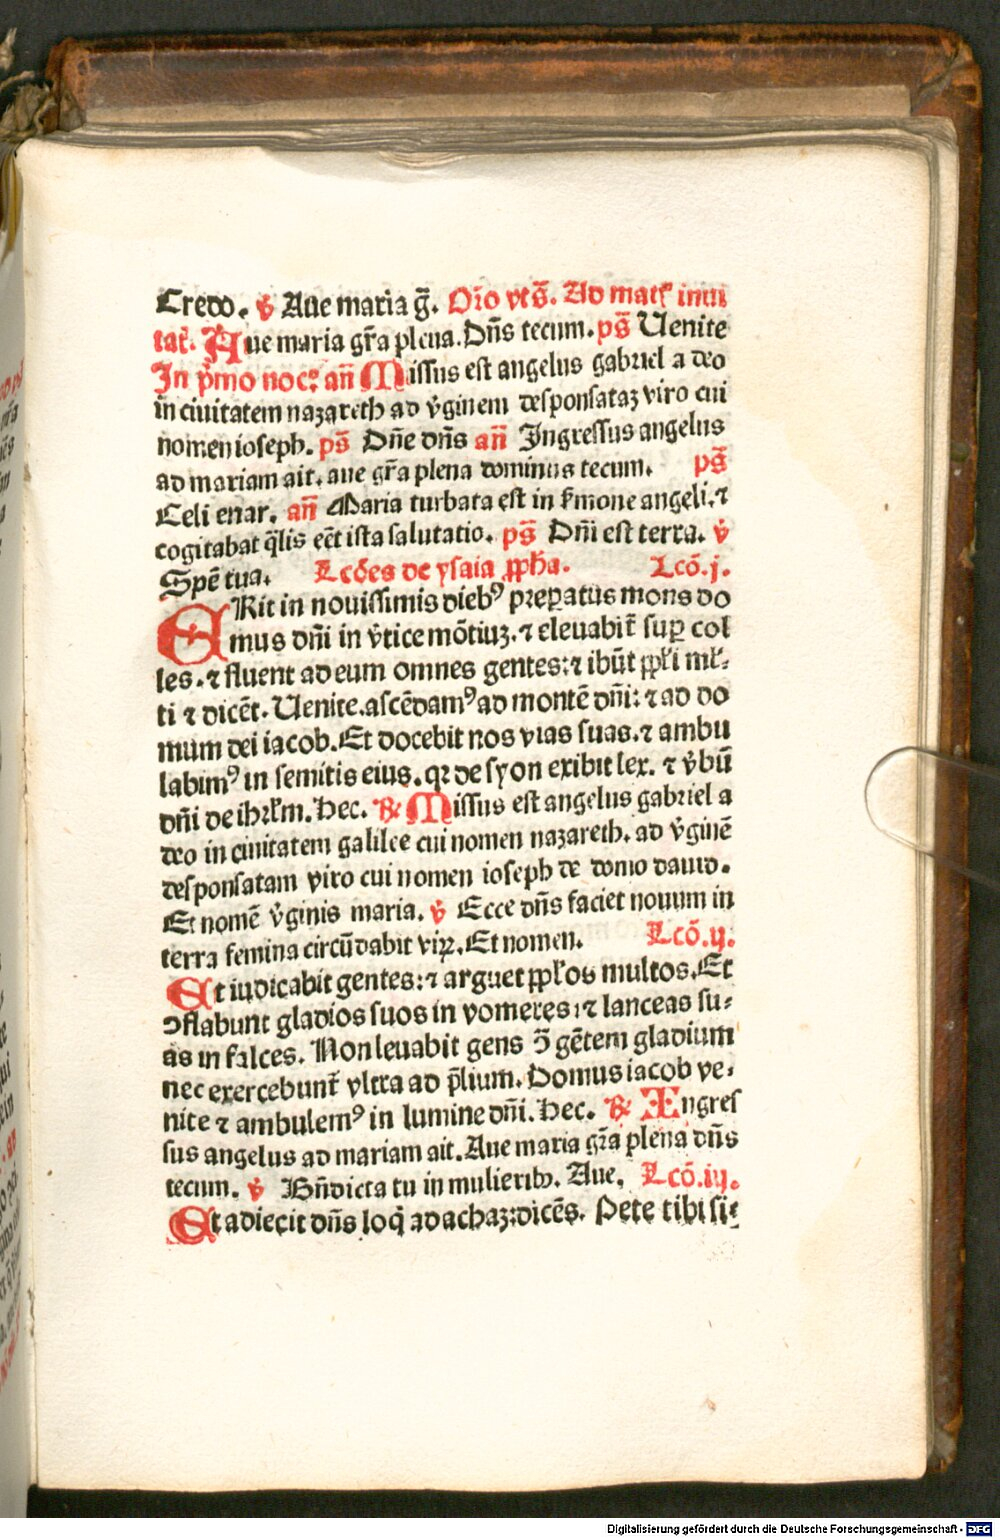 Credo. v̾ Aue maria g̃. Or̃o vts̃. Ad matꝭ inui
tat̾. Aue maria gr̃a plena. Dñs tecum. ps̃ Uenite
In p̾mo noc̾. añ Missus est angelus gabriel a deo
in ciuitatem nazareth ad v̾ginem desponsataꝫ viro cui
nomen ioseph. ps̃ Dñe dñs añ Ingressus angelus
ad mariam ait. aue gr̃a plena dominus tecum. ps̃
Celi enar. añ Maria turbata est in ẜmone angeli. ⁊
cogitabat q̃lis eēt ista salutatio. ps̃ Dñi est terra. v̾
Spē tua. Lcōes de ysaia ꝓph̾a. Lcō. j.
ERit in nouissimis diebꝰ preꝑatus mons do
mus dñi in v̾tice mōtiuꝫ. ⁊ eleuabit̾ suꝑ col
les. ⁊ fluent ad eum omnes gentes: ⁊ ibūt ppl̾i ml̾⸗
ti ⁊ dicēt. Uenite. ascēdamꝰ ad montē dñi: ⁊ ad do
mum dei iacob. Et docebit nos vias suas. ⁊ ambu
labimꝰ in semitis eius. qꝛ de syon exibit lex. ⁊ v̾bū
dñi de ihrl̾m. Hec. ℟ Missus est angelus gabriel a
deo in ciuitatem galilee cui nomen nazareth. ad v̾ginē
desponsatam viro cui nomen ioseph de domo dauid.
Et nomē v̾ginis maria. v̾ Ecce dñs faciet nouum in
terra femina circūdabit viꝝ. Et nomen. Lcō. ij.
Et iudicabit gentes: ⁊ arguet ppl̾os multos. Et
ꝯflabunt gladios suos in vomeres: ⁊ lanceas su⸗
as in falces. Non leuabit gens ↄ̃ gētem gladium
nec exercebunt̾ vltra ad p̃lium. Domus iacob ve⸗
nite ⁊ ambulemꝰ in lumine dñi. Hec. ℟ Ingres
sus angelus ad mariam ait. Aue maria gr̃a plena dñs
tecum. v̾ Bñdicta tu in mulieribꝫ. Aue. Lcō. iij.
Et adiecit dñs loq̾ ad achaz: dicēs. Pete tibi si⸗
Digitalisierung gefördert durch die Deutsche Forschungsgemeinschaft - DFG